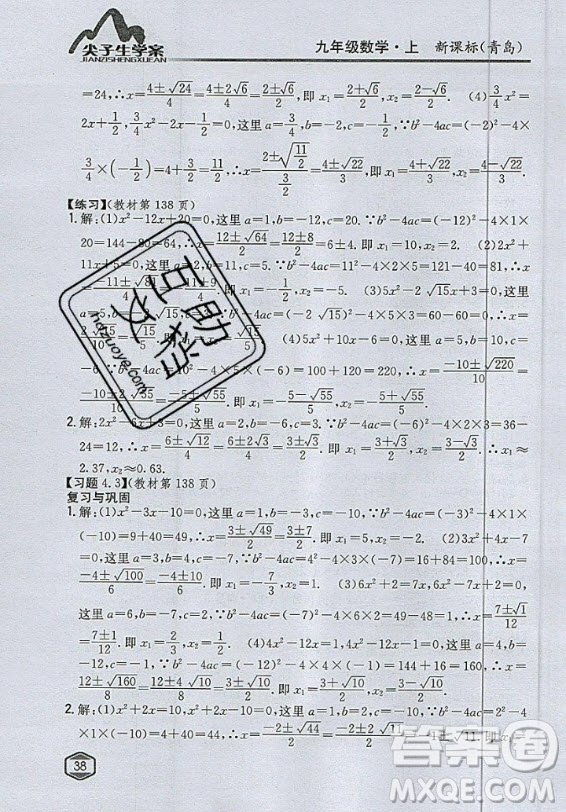 尖子生学案
JIANZISHENGXUEAN
九年级数学·上 新课标(青岛)
=24,∴x=(4±√24)/4=(4±2√6)/4=(2±√6)/2.即 x₁=(2+√6)/2,x₂=(2-√6)/2. (4)3/4x²=
2x+1/2,3/4x²-2x-1/2=0,这里 a=3/4,b=-2,c=-1/2.∵b²-4ac=(-2)²-4×
3/4×(-1/2)=4+3/2=11/2,∴x=(2±√(11/2))/(3/2)=(4±√22)/3.即 x₁=(4+√22)/3,x₂=(4-√22)/3.
【练习】(教材第138页)
1.解:(1)x²-12x+20=0,这里 a=1,b=-12,c=20.∵b²-4ac=(-12)²-4×1×
20=144-80=64,∴x=(12±√64)/2=(12±8)/2=6±4.
11x+5=0,这里 a=2,b=11,c=5.∵b²-4ac=11²-4×2×5=121-40=81,∴x=
(-11±√81)/4
这里
a=5,b=-2√15
(-2√15)²-4×5×3=60-60=0,∴x=
b=10,c=-6.∵b²-4ac=100+120=220,∴x=(-10±√220)/10=
(-10±2√55)/10=(-5±√55)/5.即 x₁=(-5+√55)/5,x₂=(-5-√55)/5.
2.解:2x²-6x+3=0,这里 a=2,b=-6,c=3.∵b²-4ac=(-6)²-4×2×3=36-
24=12,∴x=(6±√12)/4=(6±2√3)/4=(3±√3)/2.即 x₁=(3+√3)/2,x₂=(3-√3)/2.∴x₁≈
2.37,x₂≈0.63.
【习题4.3】(教材第138页)
复习与巩固
1.解:(1)x²-3x-10=0,这里 a=1,b=-3,c=-10.∵b²-4ac=(-3)²-4×1×
(-10)=9+40=49,∴x=(3±√49)/2=(3±7)/2.即 x₁=5,x₂=-2.
这里 a=3,b=4,c=-7.∵b²-4ac=4²-4×3×(-7)=16+84=100,∴x=
(-4±√100)/6=(-4±10)/6.即 x₁=-7/3,x₂=1. (3)6x²+2=7x,6x²-7x+2=0,
这里 a=6,b=-7,c=2.∵b²-4ac=(-7)²-4×6×2=49-48=1,∴x=(7±√1)/12=
(7±1)/12.即 x₁=2/3,x₂=1/2. (4)4x²-12x=1,4x²-12x-1=0,这里 a=4,
b=-12,c=-1.∵b²-4ac=(-12)²-4×4×(-1)=144+16=160,∴x=
(12±√160)/8=(12±4√10)/8=(3±√10)/2.即 x₁=(3+√10)/2,x₂=(3-√10)/2.
2.解:(1)x²+2x-10=0,这里 a=1,b=2,c=-10.∵b²-4ac=2²-4
×1×(-10)=44,∴x=(-2±√44)/2=(-2±2√11)/2=-1±√11.即
38
互助文档
hezuoye.com
答案圈
MXQE.COM